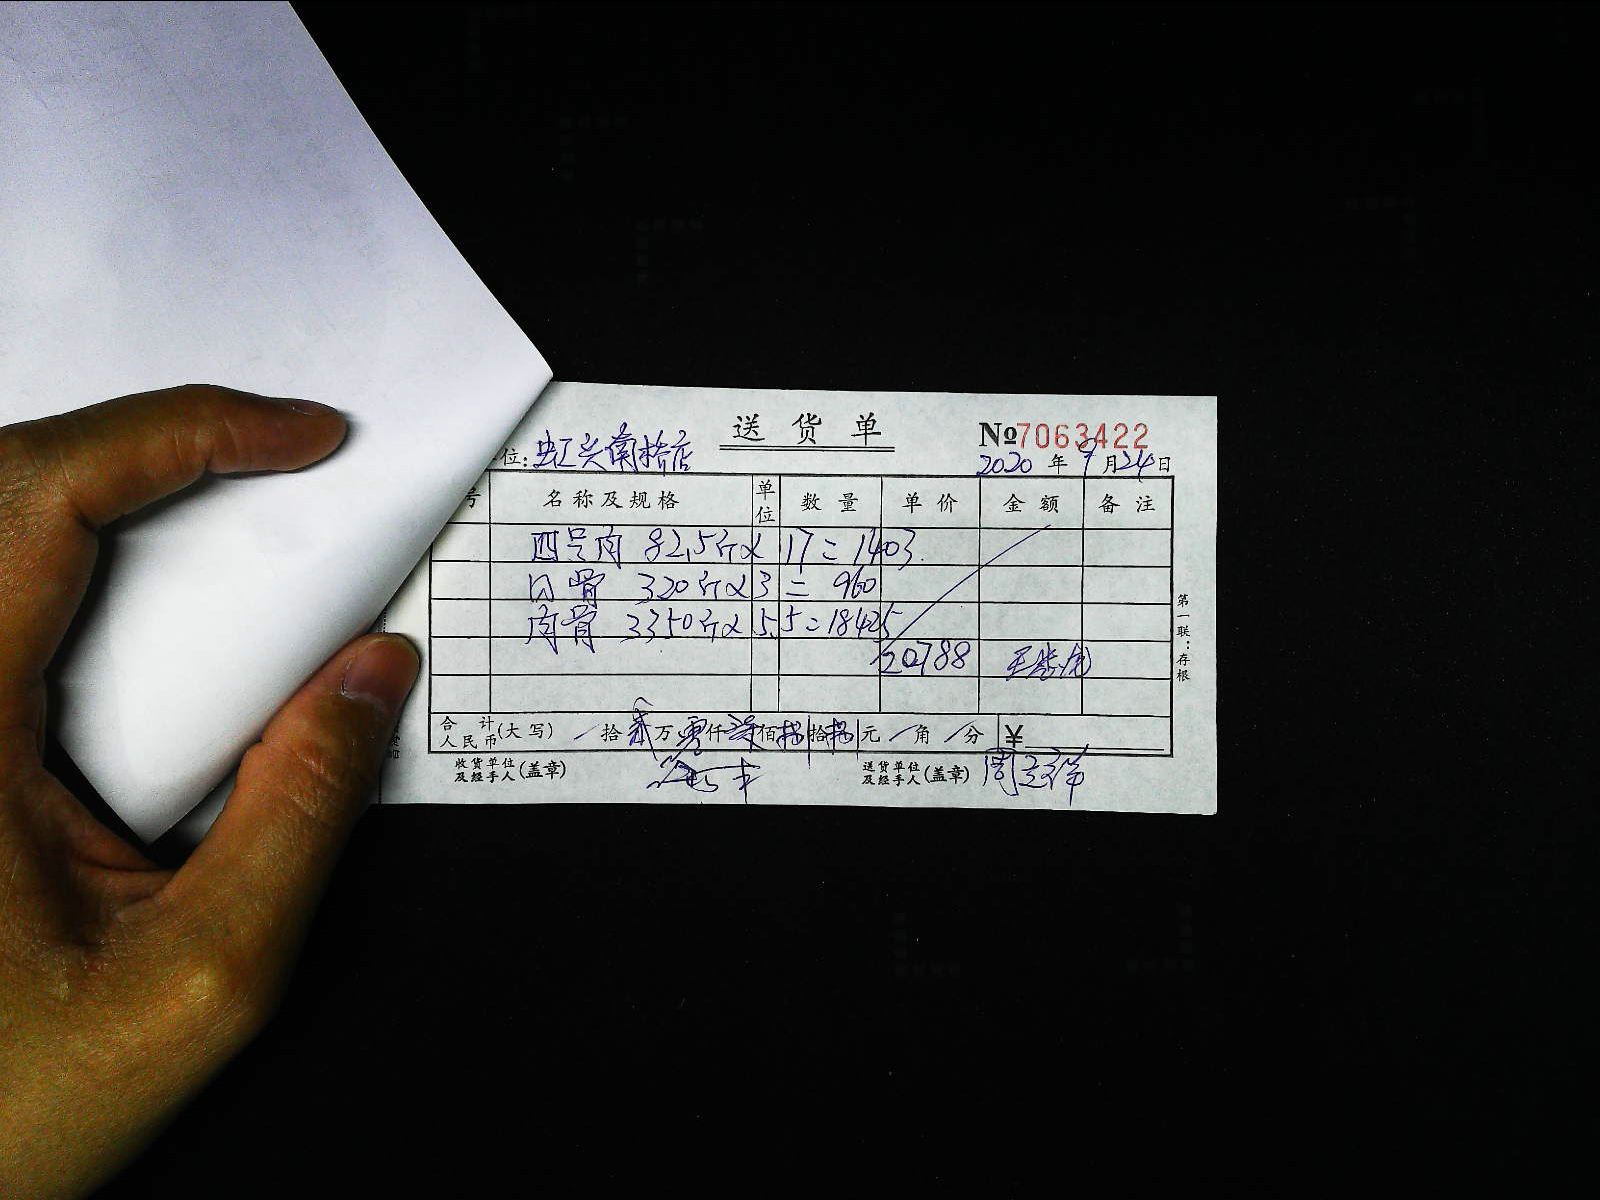 送货单
No 7063422
位: 虹关南桥店 2020年9月24日
号 名称及规格 单位 数量 单价 金额 备注
四号肉 82.5斤×17=1403.
月骨 320斤×3=960
肉骨 3350斤×5.5=18425
20788
合计人民币(大写) 拾贰万零仟柒佰捌拾捌元 角 分 ¥
收货单位及经手人(盖章) 送货单位及经手人(盖章)
第一联:存根